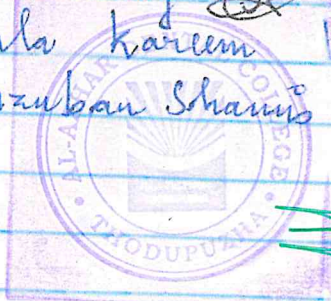 la kareem
zuban Shamis
AL-AZHAR COLLEGE
THODUPUZHA